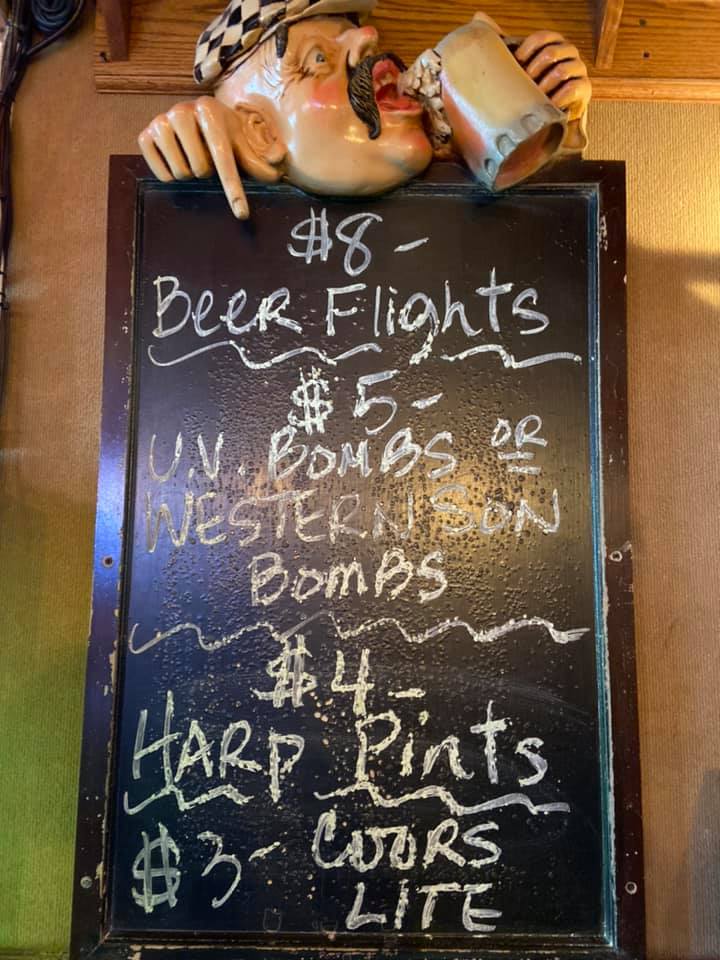 $8 -
Beer Flights
$5 -
U.V. BOMBS OR
WESTERN SON
BOMBS
$4 -
HARP Pints
$3 - COORS
LITE